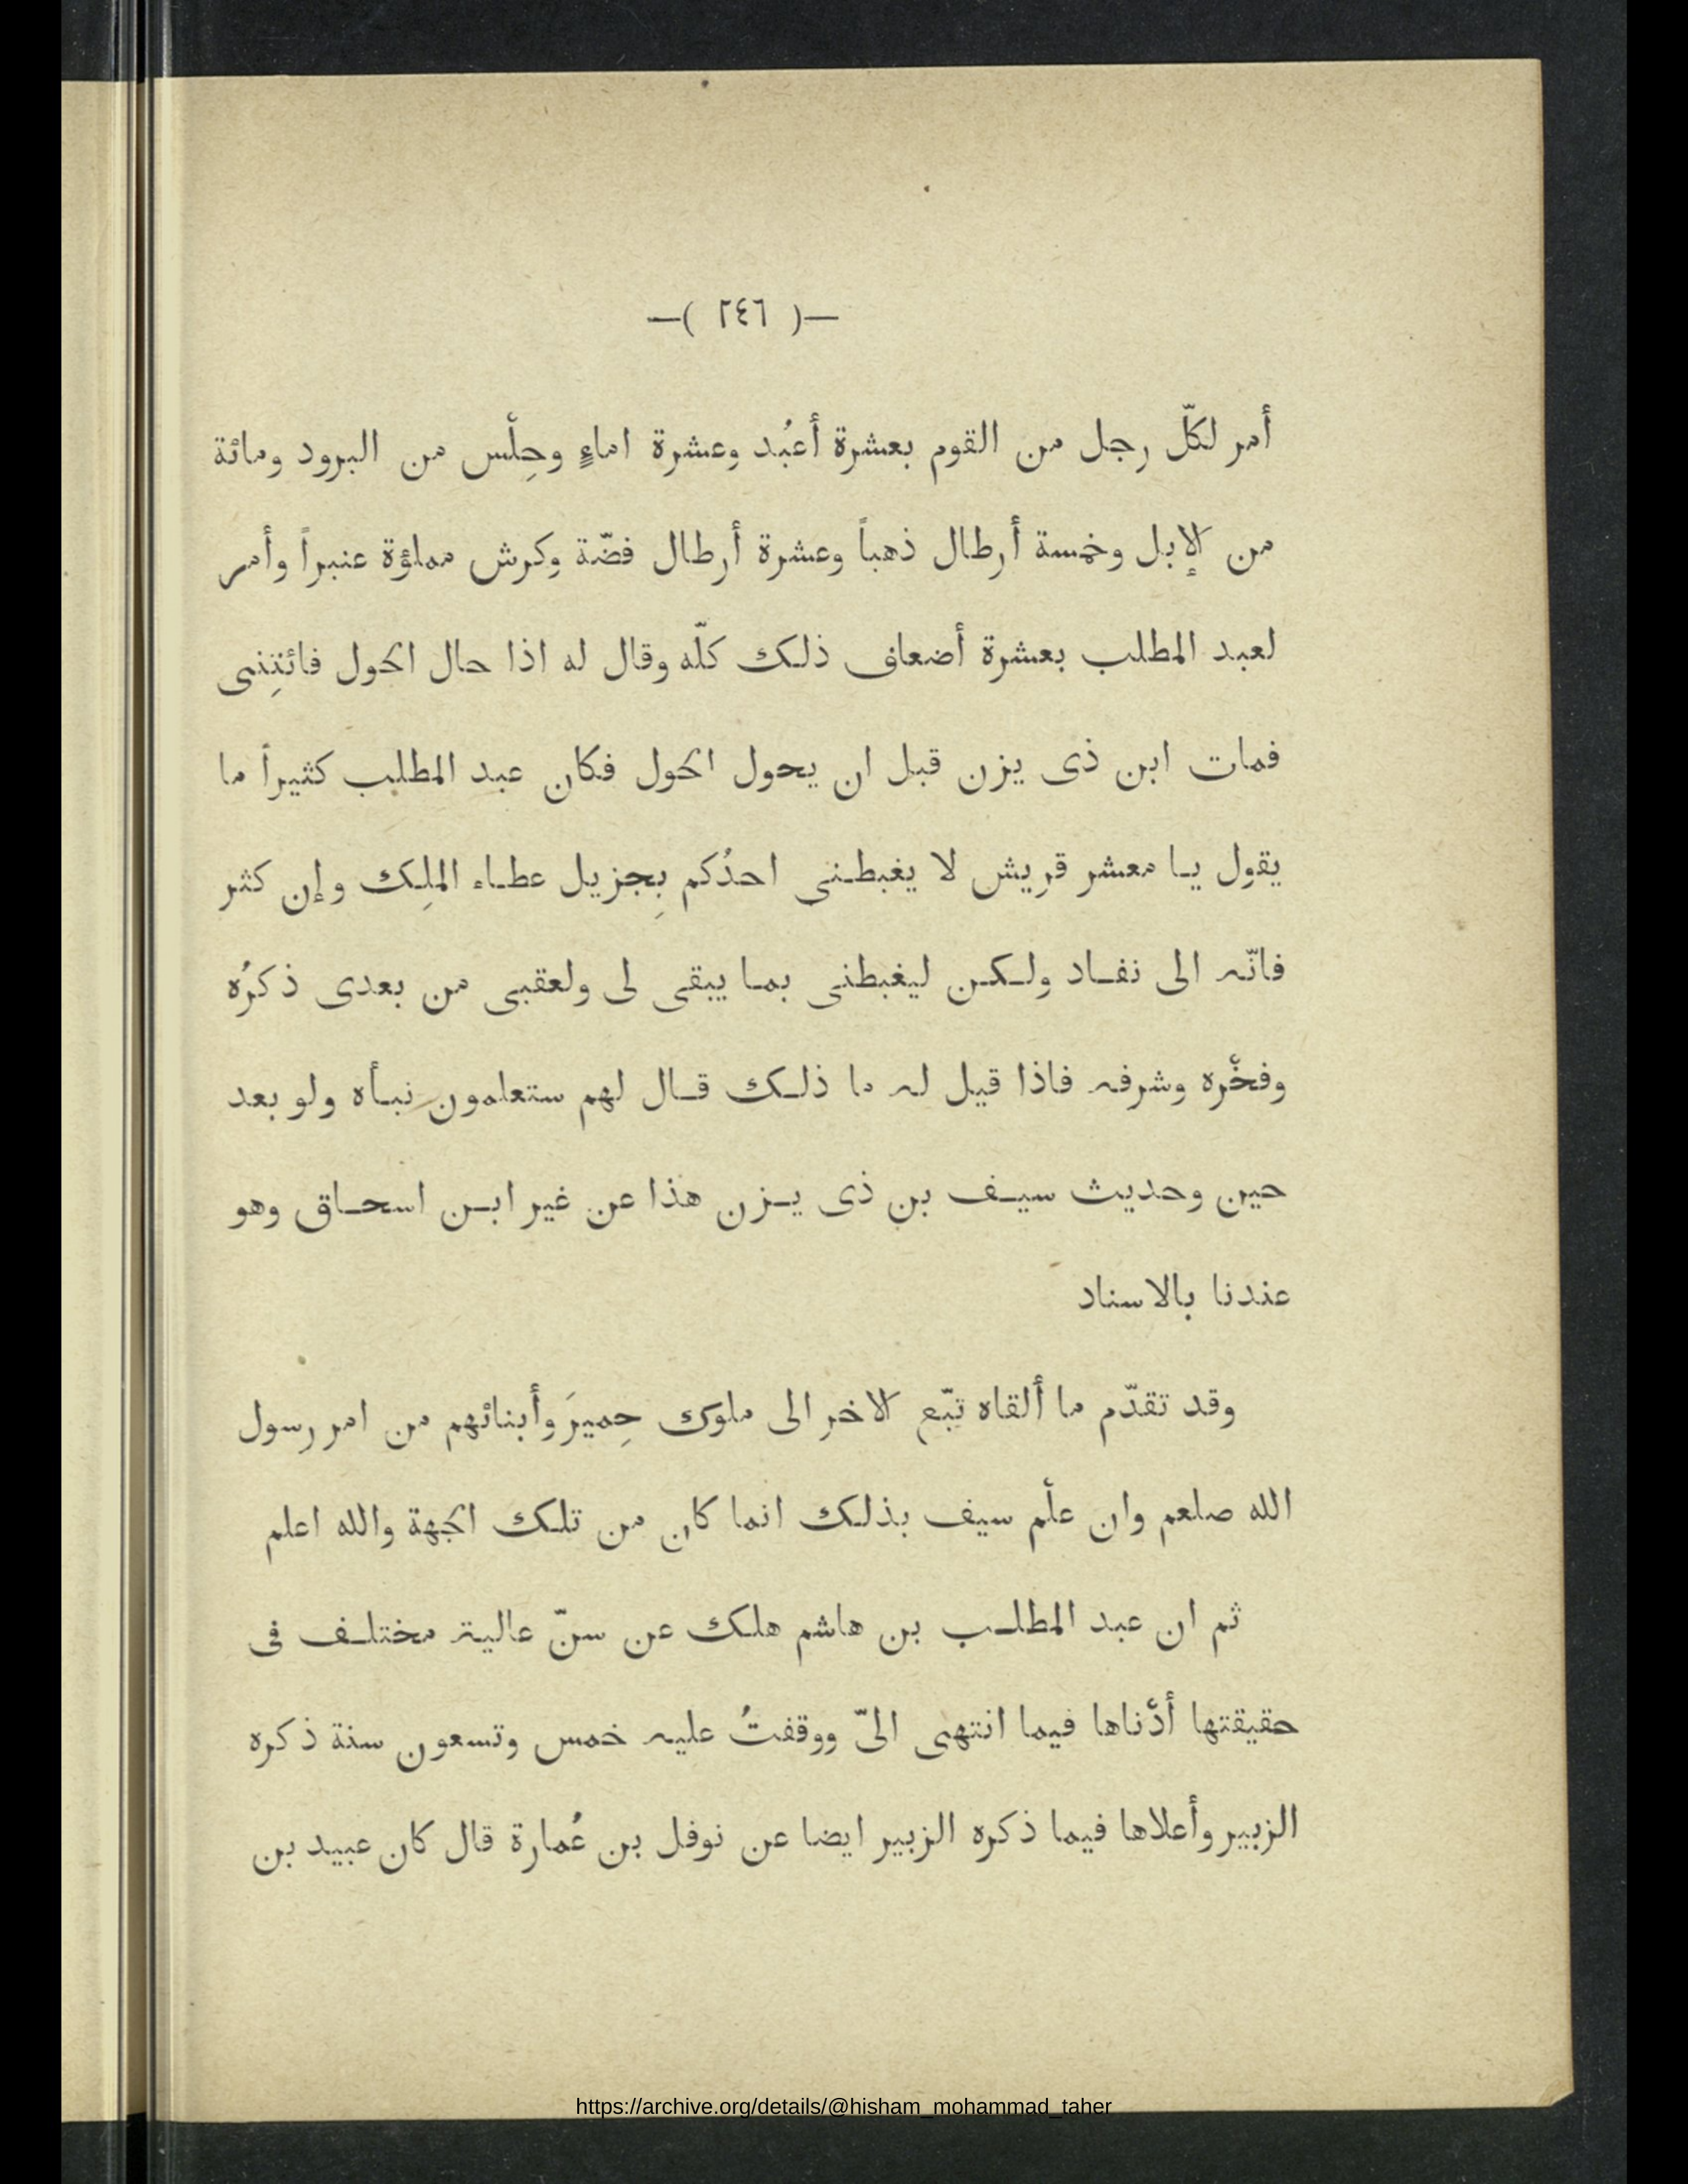 —( ٢٤٦ )—
أمر لكلّ رجل من القوم بعشرة أعبُد وعشرة اماءٍ وحِلْس من البرود ومائة
من الإبل وخمسة أرطال ذهباً وعشرة أرطال فضّة وكرش مملؤة عنبراً وأمر
لعبد المطلب بعشرة أضعاف ذلك كلّه وقال له اذا حال الحول فائتِنى
فمات ابن ذى يزن قبل ان يحول الحول فكان عبد المطلب كثيراً ما
يقول يا معشر قريش لا يغبطنى احدُكم بِجزيل عطاء الملِك وإن كثر
فانّه الى نفاد ولكن ليغبطنى بما يبقى لى ولعقبى من بعدى ذكرُه
وفخْره وشرفه فاذا قيل له ما ذلك قال لهم ستعلمون نبأه ولو بعد
حين وحديث سيف بن ذى يزن هذا عن غير ابن اسحاق وهو
عندنا بالاسناد
وقد تقدّم ما ألقاه تبّع الاخر الى ملوك حِميرَ وأبنائهم من امر رسول
الله صلعم وان علْم سيف بذلك انما كان من تلك الجهة والله اعلم
ثم ان عبد المطلب بن هاشم هلك عن سنّ عالية مختلف فى
حقيقتها أدْناها فيما انتهى الىّ ووقفتُ عليه خمس وتسعون سنة ذكره
الزبير وأعلاها فيما ذكره الزبير ايضا عن نوفل بن عُمارة قال كان عبيد بن
https://archive.org/details/@hisham_mohammad_taher